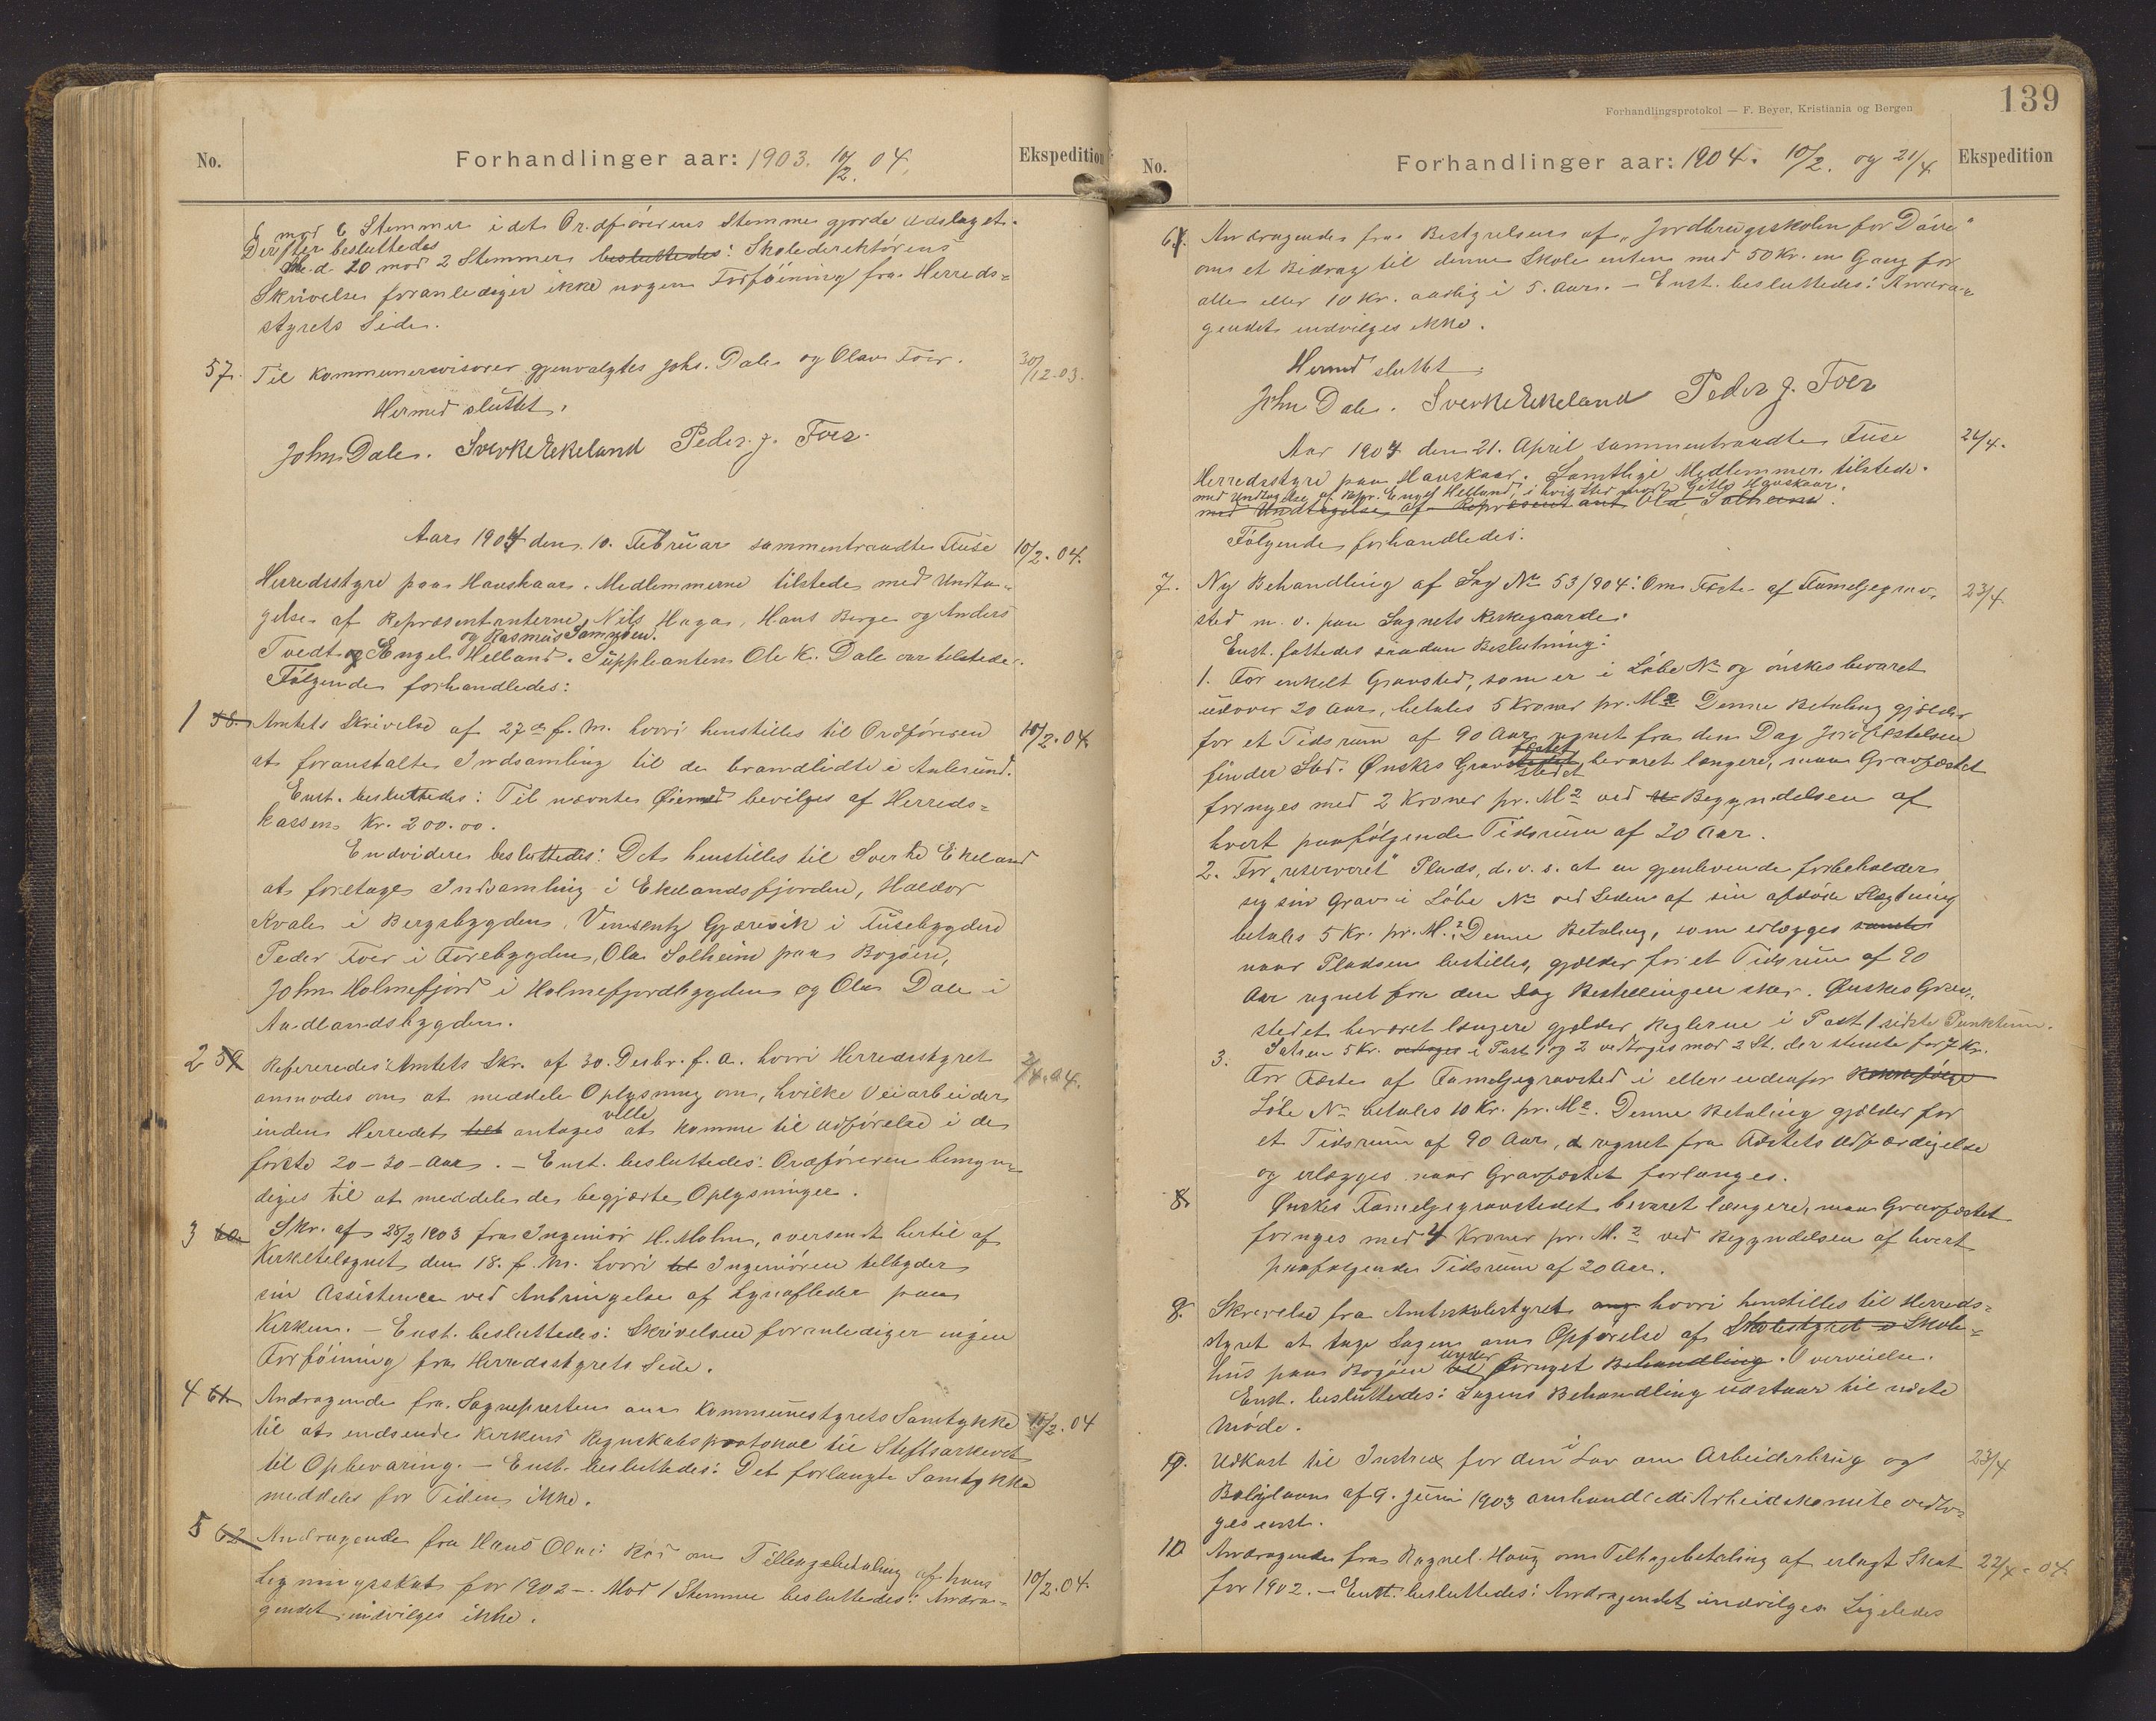 No.
Forhandlinger aar: 1903. 10/2. 04.
Ekspedition
6 mod 6 Stemmer idet Ordførerens Stemme gjorde Udslaget.
Derefter besluttedes
Med 10 mod 2 Stemmer besluttedes: Skoledirektørens
Skrivelse foranlediger ikke nogen Forføining fra Herreds=
styrets Side.
57. Til Kommunerevisorer gjenvalgtes Johs. Dale og Olav Foer. 30/12.03.
Hermed sluttet.
John Dale. Sverke Ekeland Peder J. Foer.
Aar 1904 den 10. Februar sammentraadte Fuse 10/2.04.
Herredsstyre paa Hauskaar. Medlemmerne tilstede med Undta-
gelse af Repræsentanterne Nils Hagar, Hans Berge og Anders
og Rasmus Samnøen.
Tvedt og Engel Helland. Suppleanten Ole K. Dale var tilstede.
Følgende forhandledes:
1 58. Amtets Skrivelse af 27de f. M. hvori henstilles til Ordføreren 10/2.04.
at foranstalte Indsamling til de brandlidte i Aalesund.
Enst. besluttedes: Til nævnte Øiemed bevilges af Herreds=
kassen Kr. 200.00.
Endvidere besluttedes: Det henstilles til Sverke Ekeland
at foretage Indsamling i Ekelandsfjorden, Haldor
Kvale i Bergsbygden, Vinsentz Gjærevik i Fusebygden
Peder Foer i Forebygden, Ola Solheim paa Bogøen,
John Holmefjord i Holmefjordbygden og Ola Dale i
Aadlandsbygden.
2 59 Refereredes: Amtets Skr. af 30. Desbr. f. a. hvori Herredsstyret 2/4.04.
anmodes om at meddele Oplysning om, hvilke Veiarbeider
ville
inden Herredet tilt antages at komme til Udførelse i de
første 20-30 Aar. - Enst. besluttedes: Ordføreren bemyn-
diges til at meddele de begjærte Oplysninger.
3 60 Skr. af 28/2 1903 fra Ingeniør H. Mohn, oversendt hertil af
Kirketilsynet den 18. f. M. hvori til Ingeniøren tilbyder
sin Assistence ved Anbringelse af Lynafleder paa
Kirken. - Enst. besluttedes: Skrivelsen foranlediger ingen
Forføining fra Herredsstyrets Side.
4 61 Andragende fra Sognepresten om Kommunestyrets Samtykke 10/2.04
til at indsende Kirkens Regnskabsprotokol til Stiftsarkivet
til Opbevaring. - Enst. besluttedes: Det forlangte Samtykke
meddeles for Tiden ikke.
5 62 Andragende fra Hans Olai Røs om Tilbagebetaling af hans
Ligningsskat for 1902 -. Mod 1 Stemme besluttedes: Andra- 10/2.04.
gendet indvilges ikke.
139
Forhandlingsprotokol — F. Beyer, Kristiania og Bergen
No.
Forhandlinger aar: 1904. 10/2. og 21/4
Ekspedition
6. Andragende fra Bestyrelsen af "Jordbrugsskolen for Døve"
om et Bidrag til denne Skole enten med 50 Kr. en Gang for
alle eller 10 Kr. aarlig i 5. Aar. - Enst. besluttedes: Andra-
gendet indvilges ikke.
Hermed sluttet
John Dale. Sverke Ekeland Peder J. Foer
Aar 1904 den 21. April sammentraadte Fuse 24/4.
Herredsstyre paa Hauskaar. Samtlige Medlemmer tilstede.
med Undtagelse af Repr. Engel Helland, i hvis Sted mødte Gitle Hauskaar.
med Undtagelse af Repræsentant Ola Solheim.
Følgende forhandledes:
7. Ny Behandling af Sag No 53/904: Om Fæste af Familjegrav- 23/4
sted m. v. paa Sognets Kirkegaarde.
Enst. fattedes saadan Beslutning:
1. For enkelt Gravsted, som er i Løbe No og ønskes bevaret
udover 20 Aar, betales 5 Kroner pr. M2. Denne Betaling gjælder
for et Tidsrum af 90 Aar regnet fra den Dag Jordfæstelsen
finder Sted. Ønskes Gravstedet bevaret længere, maa Gravfæstet
fornyes med 2 Kroner pr. M2 ved Begyndelsen af
hvert paafølgende Tidsrum af 20 Aar.
2. For "reserveret" Plads, d. v. s. at en gjenlevende forbeholder
sig sin Grav i Løbe No ved Siden af sin afdøde Slægtning
betales 5 Kr. pr. M.2 Denne Betaling, som erlægges samtr
naar Pladsen bestilles, gjælder for et Tidsrum af 90
Aar regnet fra den Dag Bestillingen sker. Ønskes Grav-
stedet bevaret længere gjælder Reglerne i Post 1 sidste Punktum.
Satsen 5 Kr. vedtoges i Post 1 og 2 vedtoges mod 2 St. der stemte for 7 Kr.
3. For Fæste af Familjegravsted i eller udenfor Rækkefølge
Løbe No betales 10 Kr. pr. M2. Denne Betaling gjælder for
et Tidsrum af 90 Aar, regnet fra Fæstets Udfærdigelse
og erlægges naar Gravfæstet forlanges.
8. Ønskes Familjegravstedet bevaret længere, maa Gravfæstet
fornyes med 4 Kroner pr. M.2 ved Begyndelsen af hvert
paafølgende Tidsrum af 20 Aar.
8. Skrivelse fra Amtsskolestyret ang hvori henstilles til Herreds=
styret at tage Sagen om Opførelse af Skolestyret o Skole-
under
hus paa Bogøen til fornyet Behandling. Overveielse.
Enst. besluttedes: Sagens Behandling udstaar til næste
Møde.
9. Udkast til Instrux for den i Lov om Arbeiderbrug og 23/4
Boliglaan af 9. Juni 1903 omhandlede Arbeidskomite vedto-
ges enst.
10 Andragende fra Ragnel. Haug om Tilbagebetaling af erlagt Skat 22/4-04.
for 1902. - Enst. besluttedes: Andragendet indvilges Ligeledes